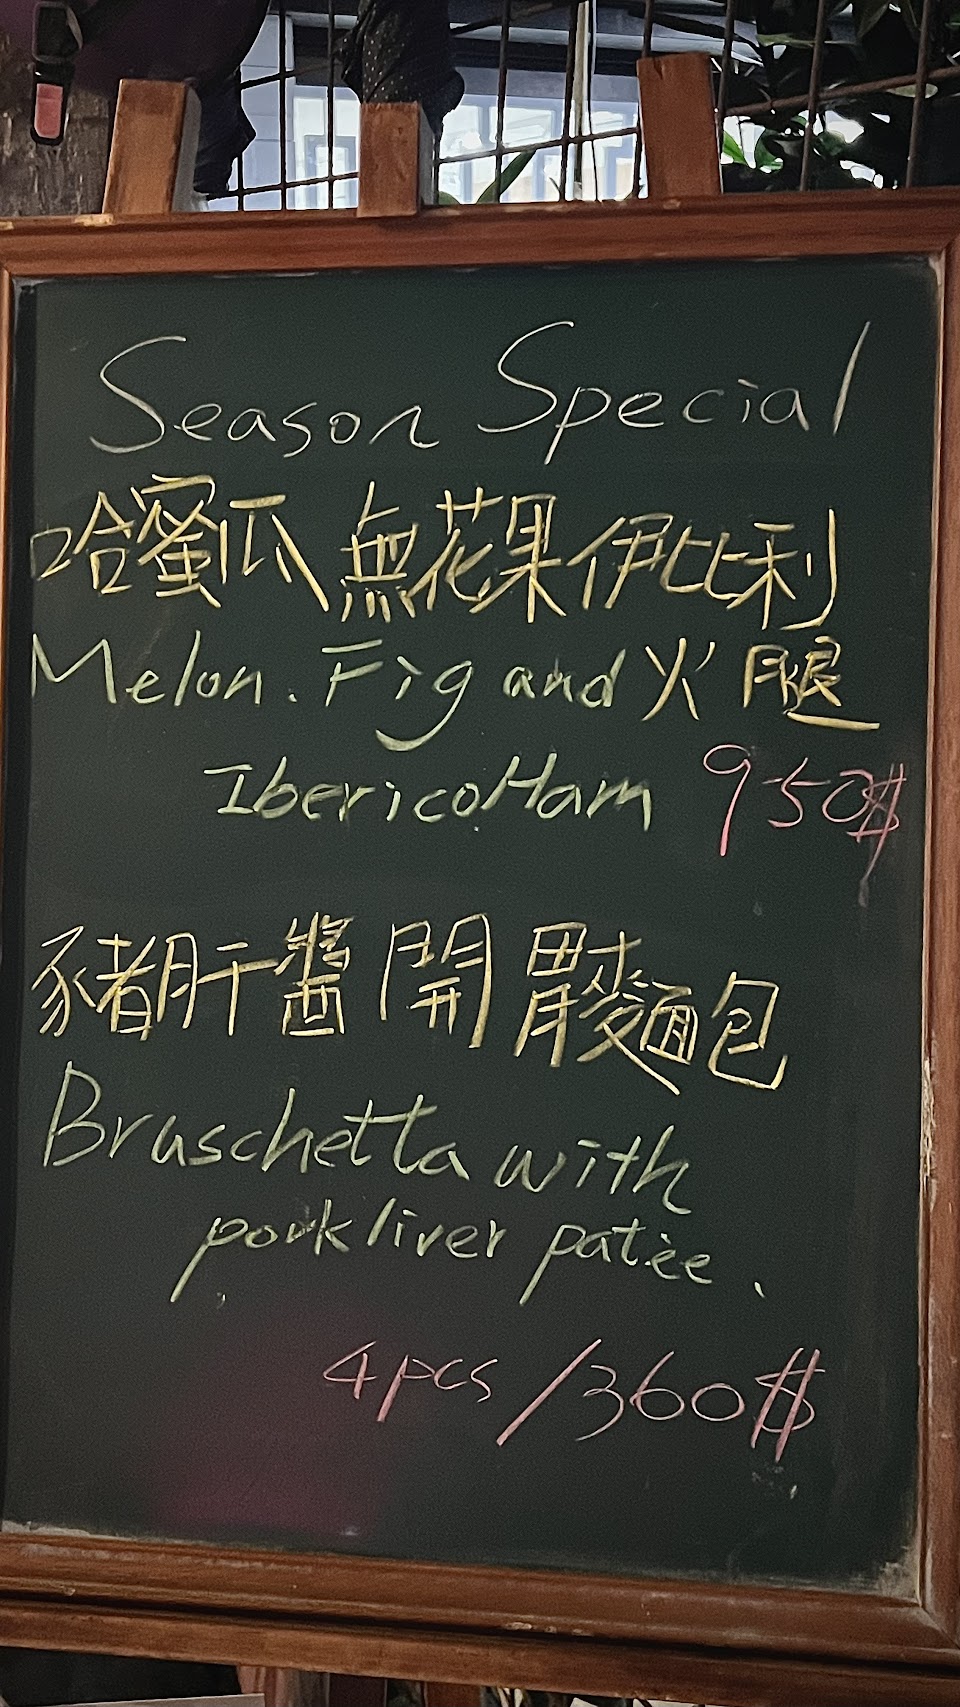 Season Special
哈蜜瓜無花果伊比利
Melon. Fig and 火腿
Iberico Ham 950$
豬肝醬開胃麵包
Bruschetta with
pork liver patèe.
4pcs/360$